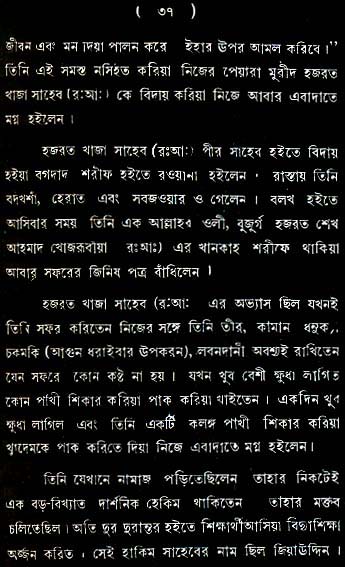 ( ৩৭ )
জীবন এবং মন দিয়া পালন করে ইহার উপর আমল করিবে।"
তিনি এই সমস্ত নসিহত করিয়া নিজের পেয়ারা মুরীদ হজরত
খাজা সাহেব (র:আ:) কে বিদায় করিয়া নিজে আবার এবাদাতে
মগ্ন হইলেন।
হজরত খাজা সাহেব (রঃআঃ) পীর সাহেব হইতে বিদায়
হইয়া বগদাদ শরীফ হইতে রওয়ানা হইলেন · রাস্তায় তিনি
বদখশাঁ, হেরাত এবং সবজওয়ার ও গেলেন। বলখ হইতে
আসিবার সময় তিনি এক আল্লাহর ওলী, বুজুর্গ হজরত শেখ
আহমাদ খোজরুবীয়া রঃআঃ) এর খানকাহ শরীফে থাকিয়া
আবার সফরের জিনিষ পত্র বাঁধিলেন।
হজরত খাজা সাহেব (র:আ: এর অভ্যাস ছিল যখনই
তিনি সফর করিতেন নিজের সঙ্গে তিনি তীর, কামান ধনুক,
চকমকি (আগুন ধরাইবার উপকরন), লবনদানী অবশ্যই রাখিতেন
যেন সফরে কোন কষ্ট না হয়। যখন খুব বেশী ক্ষুধা লাগিত
কোন পাখী শিকার করিয়া পাক করিয়া খাইতেন। একদিন খুব
ক্ষুধা লাগিল এবং তিনি একটি কলঙ্গ পাখী শিকার করিয়া
খাদেমকে পাক করিতে দিয়া নিজে এবাদাতে মগ্ন হইলেন।
তিনি যেখানে নামাজ পড়িতেছিলেন তাহার নিকটেই
এক বড়-বিখ্যাত দার্শনিক হেকিম থাকিতেন তাহার মক্তব
চলিতেছিল। অতি দূর দূরান্তর হইতে শিক্ষার্থী আসিয়া বিদ্যাশিক্ষা
অর্জ্জন করিত। সেই হাকিম সাহেবের নাম ছিল জিয়াউদ্দিন।